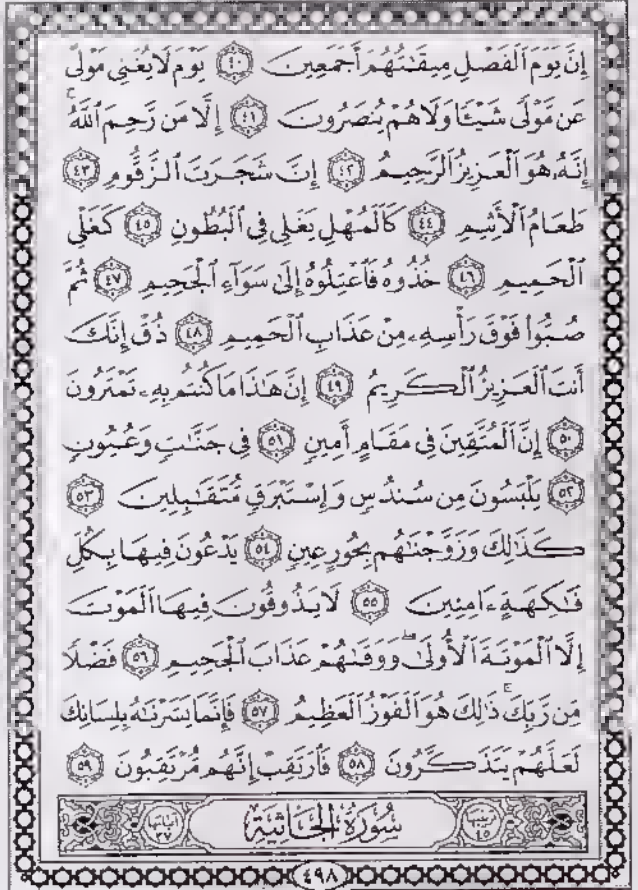 إِنَّ يَوْمَ ٱلْفَصْلِ مِيقَـٰتُهُمْ أَجْمَعِينَ ٤٠ يَوْمَ لَا يُغْنِى مَوْلًى
عَن مَّوْلًى شَيْـًٔا وَلَا هُمْ يُنصَرُونَ ٤١ إِلَّا مَن رَّحِمَ ٱللَّهُ ۚ
إِنَّهُۥ هُوَ ٱلْعَزِيزُ ٱلرَّحِيمُ ٤٢ إِنَّ شَجَرَتَ ٱلزَّقُّومِ ٤٣
طَعَامُ ٱلْأَثِيمِ ٤٤ كَٱلْمُهْلِ يَغْلِى فِى ٱلْبُطُونِ ٤٥ كَغَلْىِ
ٱلْحَمِيمِ ٤٦ خُذُوهُ فَٱعْتِلُوهُ إِلَىٰ سَوَآءِ ٱلْجَحِيمِ ٤٧ ثُمَّ
صُبُّوا۟ فَوْقَ رَأْسِهِۦ مِنْ عَذَابِ ٱلْحَمِيمِ ٤٨ ذُقْ إِنَّكَ
أَنتَ ٱلْعَزِيزُ ٱلْكَرِيمُ ٤٩ إِنَّ هَـٰذَا مَا كُنتُم بِهِۦ تَمْتَرُونَ
٥٠ إِنَّ ٱلْمُتَّقِينَ فِى مَقَامٍ أَمِينٍ ٥١ فِى جَنَّـٰتٍ وَعُيُونٍ
٥٢ يَلْبَسُونَ مِن سُندُسٍ وَإِسْتَبْرَقٍ مُّتَقَـٰبِلِينَ ٥٣
كَذَٰلِكَ وَزَوَّجْنَـٰهُم بِحُورٍ عِينٍ ٥٤ يَدْعُونَ فِيهَا بِكُلِّ
فَـٰكِهَةٍ ءَامِنِينَ ٥٥ لَا يَذُوقُونَ فِيهَا ٱلْمَوْتَ
إِلَّا ٱلْمَوْتَةَ ٱلْأُولَىٰ ۖ وَوَقَـٰهُمْ عَذَابَ ٱلْجَحِيمِ ٥٦ فَضْلًا
مِّن رَّبِّكَ ۚ ذَٰلِكَ هُوَ ٱلْفَوْزُ ٱلْعَظِيمُ ٥٧ فَإِنَّمَا يَسَّرْنَـٰهُ بِلِسَانِكَ
لَعَلَّهُمْ يَتَذَكَّرُونَ ٥٨ فَٱرْتَقِبْ إِنَّهُم مُّرْتَقِبُونَ ٥٩
ترتيبها ٤٥ سُورَةُ الجَاثِيَةِ آياتها ٣٧
٤٩٨